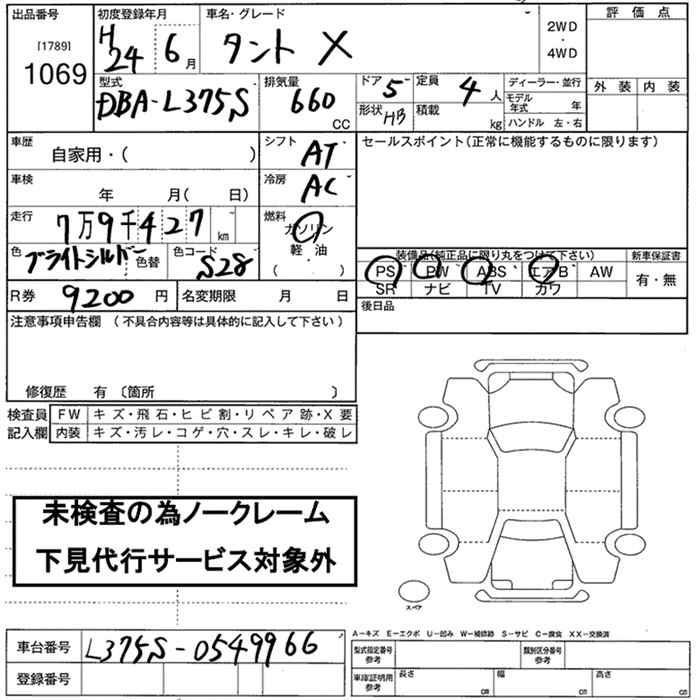 出品番号 初度登録年月 車名・グレード 評価点
[1789] H24 6月 タント X 2WD・4WD
1069 外装 内装
型式 排気量 ドア 5 定員 4人 ディーラー・並行
DBA-L375S 660 CC 形状 HB 積載 kg モデル年式 年
ハンドル 左・右
車歴 シフト セールスポイント(正常に機能するものに限ります)
自家用・( ) AT
車検 冷房
年 月( 日) AC
走行 燃料
7万9千427 km ガソリン
色 色コード 軽・油
ブライトシルバー 色替 S28 ( )
装備品(純正品に限り丸をつけて下さい) 新車保証書
PS PW ABS エアB AW 有・無
SR ナビ TV カワ
R券 9200円 名変期限 月 日 後日品
注意事項申告欄 (不具合内容等は具体的に記入して下さい)
修復歴 有 〔箇所 〕
検査員 FW キズ・飛石・ヒビ割・リペア跡・X要
記入欄 内装 キズ・汚レ・コゲ・穴・スレ・キレ・破レ
未検査の為ノークレーム
下見代行サービス対象外
スペア
A-キズ E-エクボ U-凹み W-補修跡 S-サビ C-腐食 XX-交換済
車台番号 L375S-0549966 型式指定番号 参考 類別区分番号 参考
登録番号 車庫証明用 参考 長さ cm 幅 cm 高さ cm